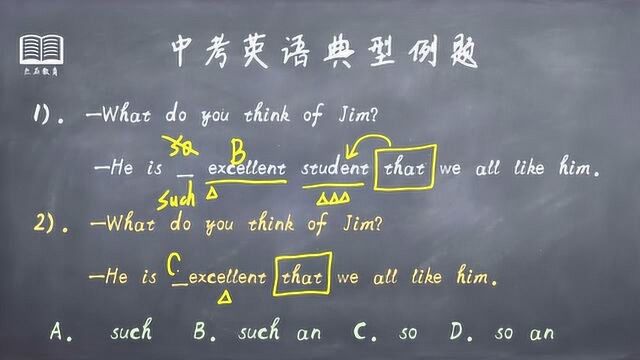 中考英语典型例题
点石教育
1). —What do you think of Jim?
so B
—He is _ excellent student that we all like him.
such
2). —What do you think of Jim?
C
—He is _ excellent that we all like him.
A. such B. such an C. so D. so an